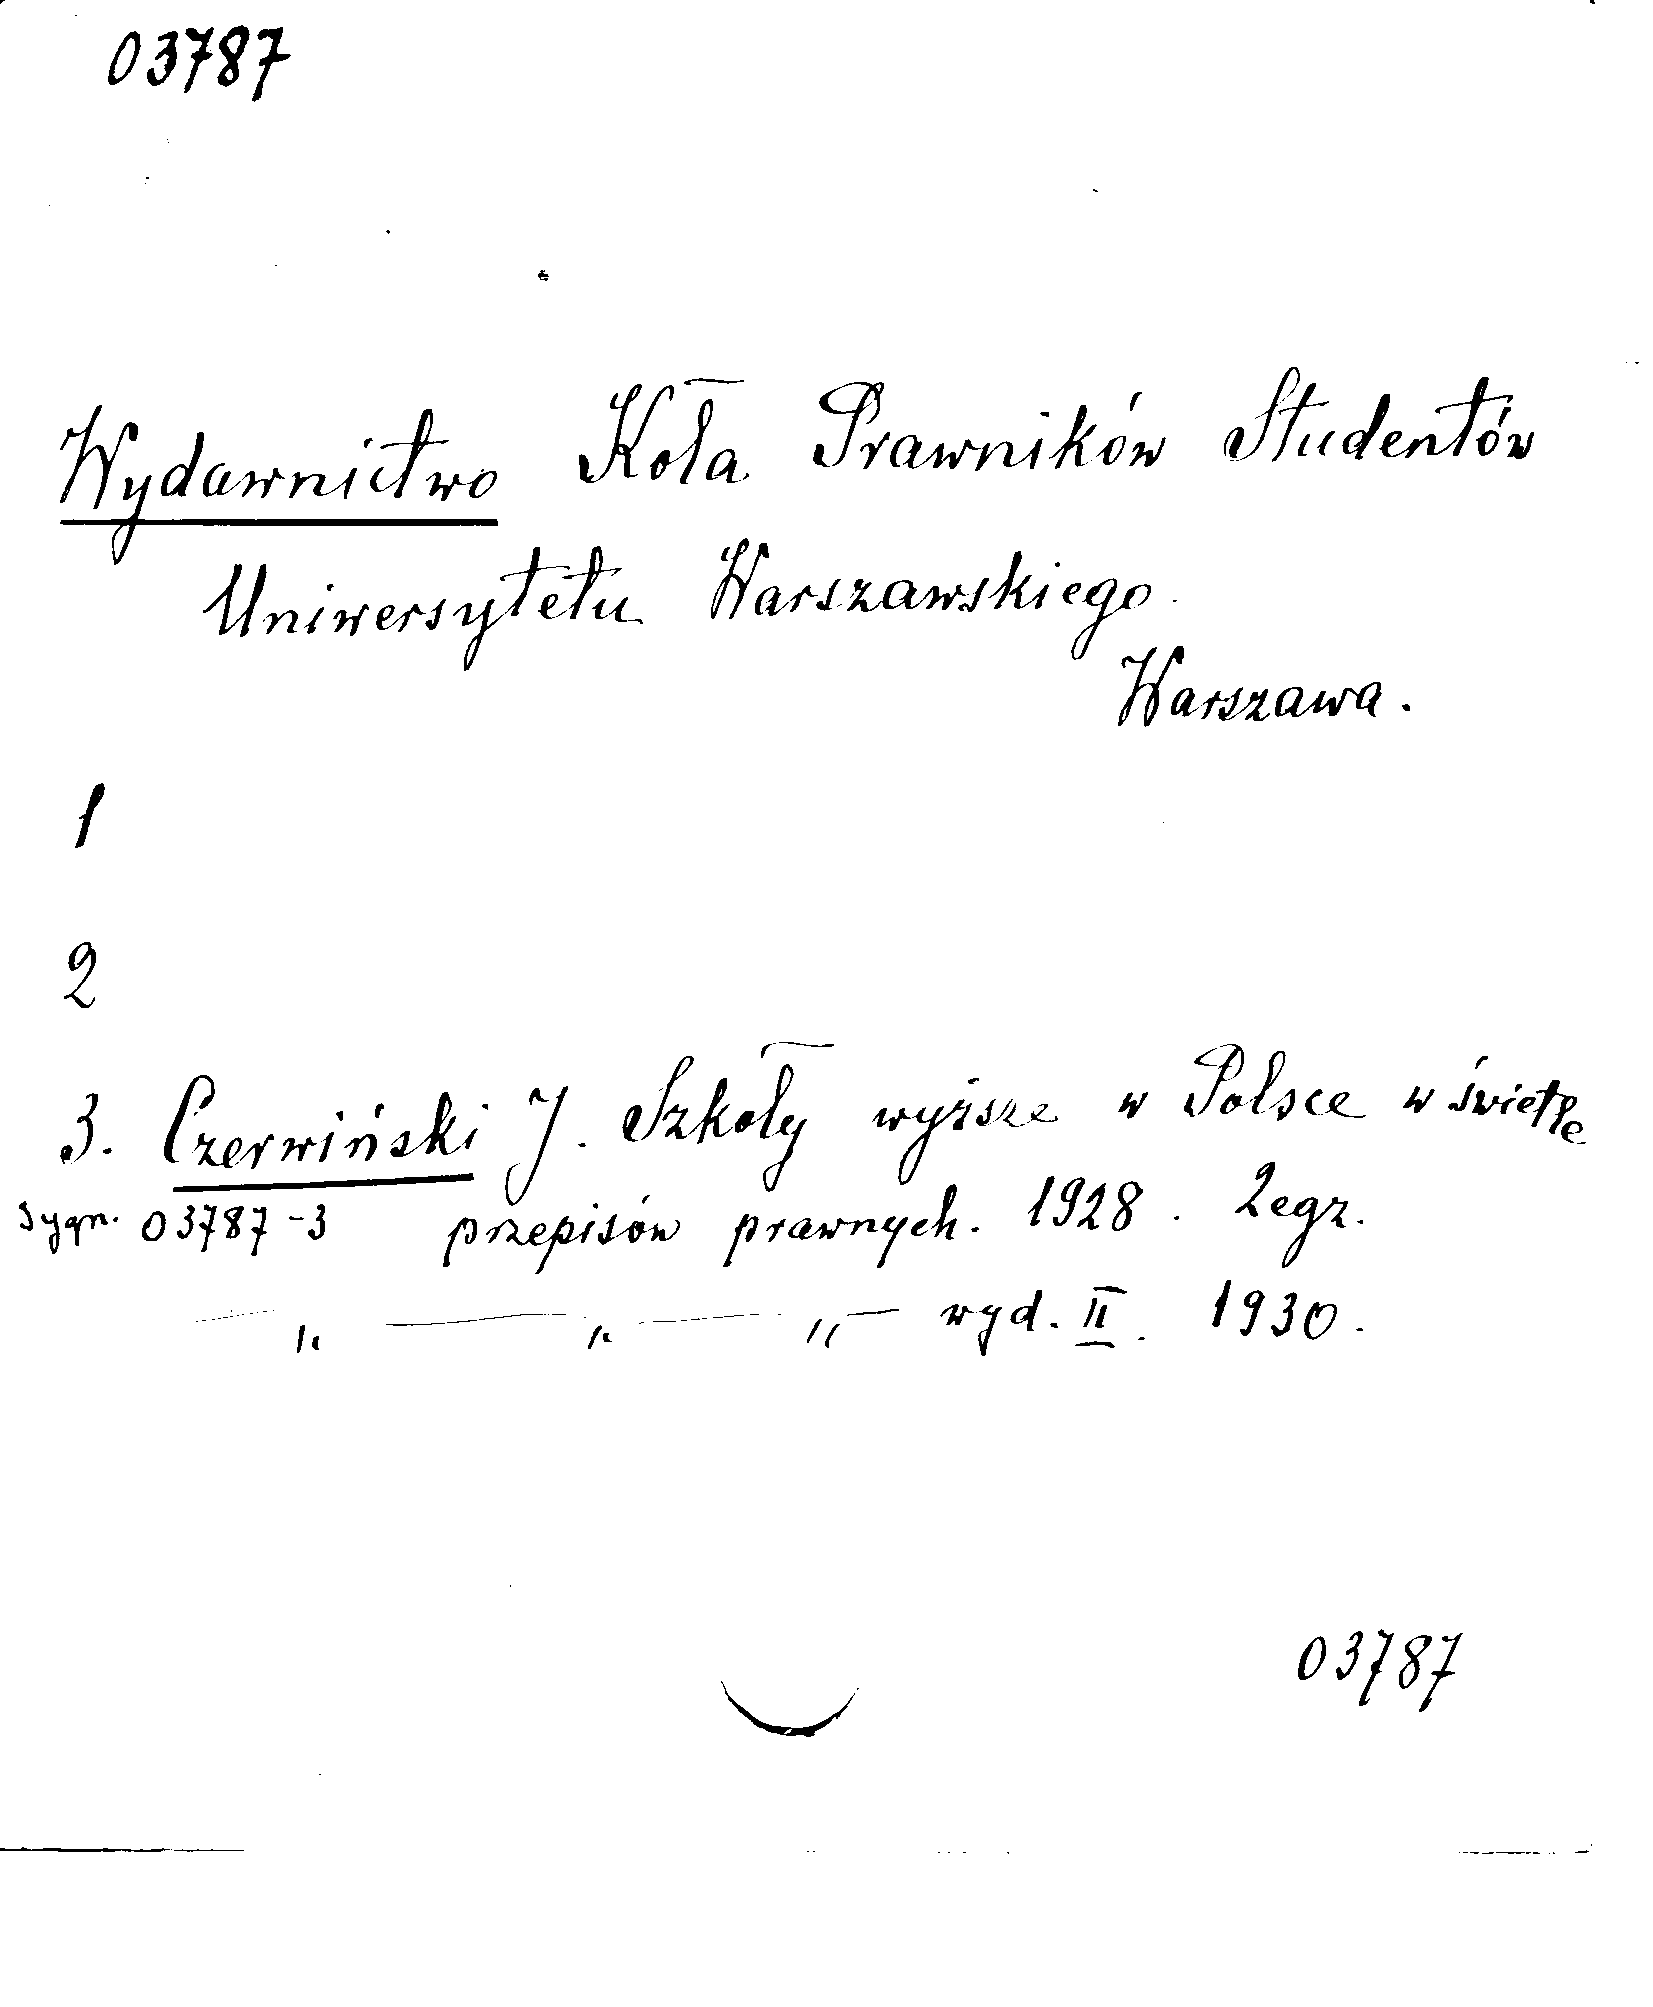 03787
Wydawnictwo Koła Prawników Studentów
Uniwersytetu Warszawskiego.
Warszawa.
1
2
3. Czerwiński J. Szkoły wyższe w Polsce w świetle
sygn. 03787-3 przepisów prawnych. 1928. 2egz.
— „ — „ — „ — wyd. II. 1930.
03787